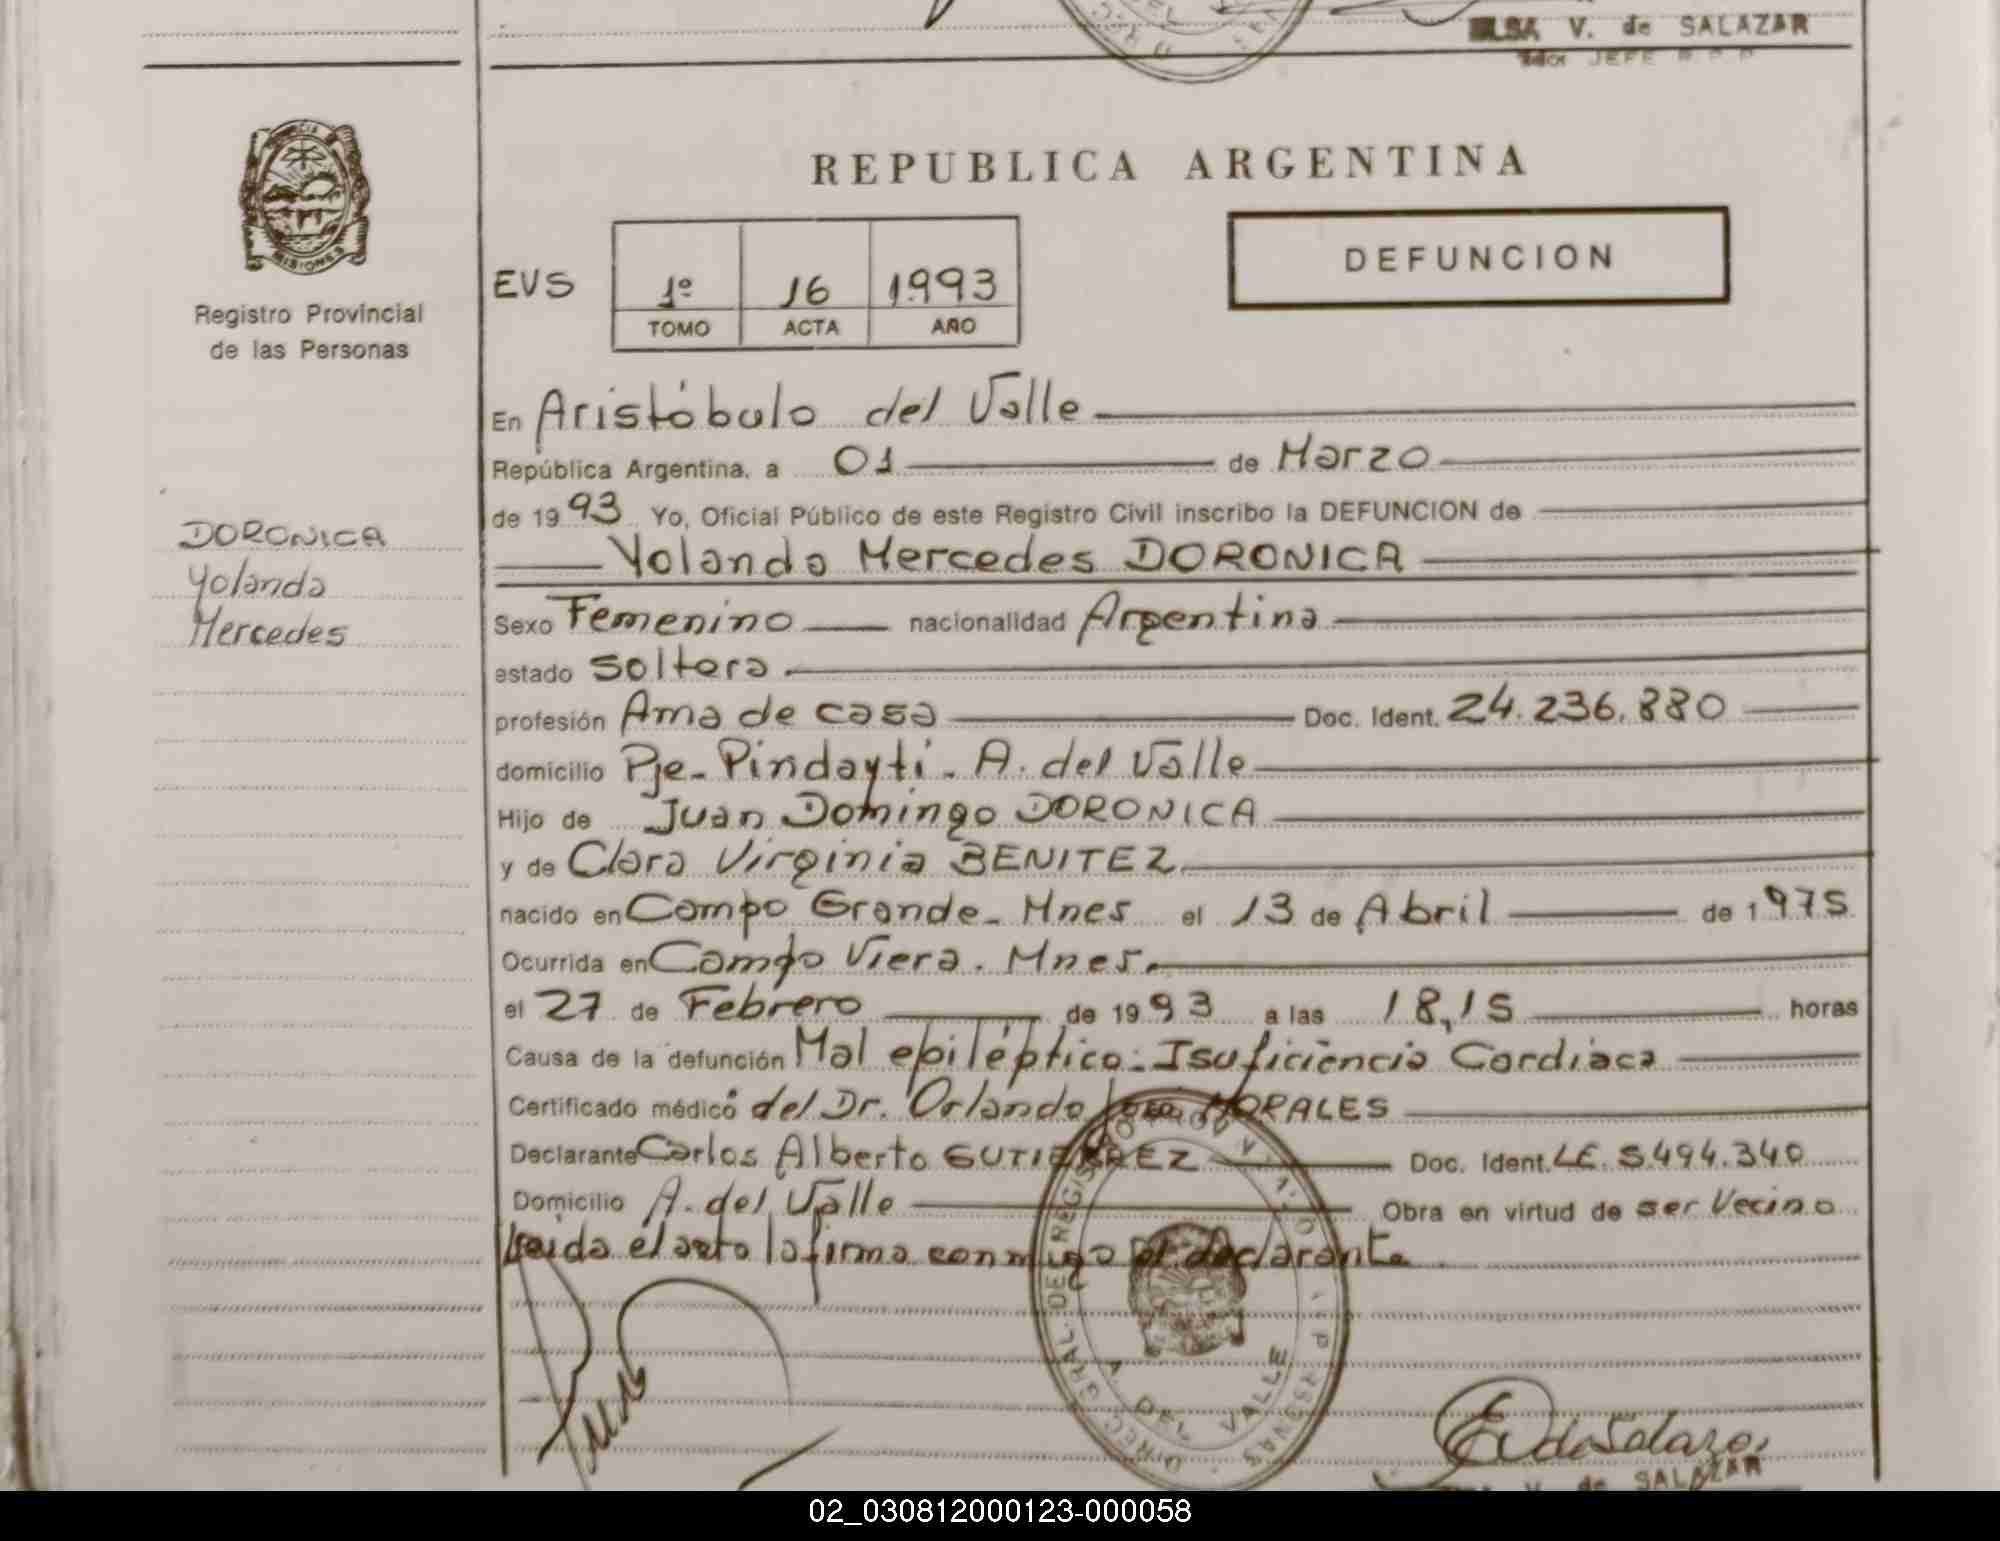 ELSA V. de SALAZAR
JEFE R.P.P
REPUBLICA ARGENTINA
MISIONES
Registro Provincial
de las Personas
EVS
1º 16 1993
TOMO ACTA AÑO
DEFUNCION
DORONICA
Yolanda
Mercedes
En Aristóbulo del Valle
República Argentina, a 01 de Marzo
de 1993 Yo, Oficial Público de este Registro Civil inscribo la DEFUNCION de
Yolanda Mercedes DORONICA
Sexo Femenino nacionalidad Argentina
estado Soltera
profesión Ama de casa Doc. Ident. 24.236.880
domicilio Pje- Pindayti. A. del Valle
Hijo de Juan Domingo DORONICA
y de Clara Virginia BENITEZ
nacido en Campo Grande- Mnes el 13 de Abril de 1975
Ocurrida en Campo Viera. Mnes.
el 27 de Febrero de 1993 a las 18,15 horas
Causa de la defunción Mal epiléptico- Isuficiencia Cardiaca
Certificado médico del Dr. Orlando MORALES
Declarante Carlos Alberto GUTIERREZ Doc. Ident. LE. 5.494.340
Domicilio A. del Valle Obra en virtud de ser Vecino
Leida el acta la firma conmigo el declarante
DEL VALLE
EV de Salazar
V. de SALAZAR
02_030812000123-000058